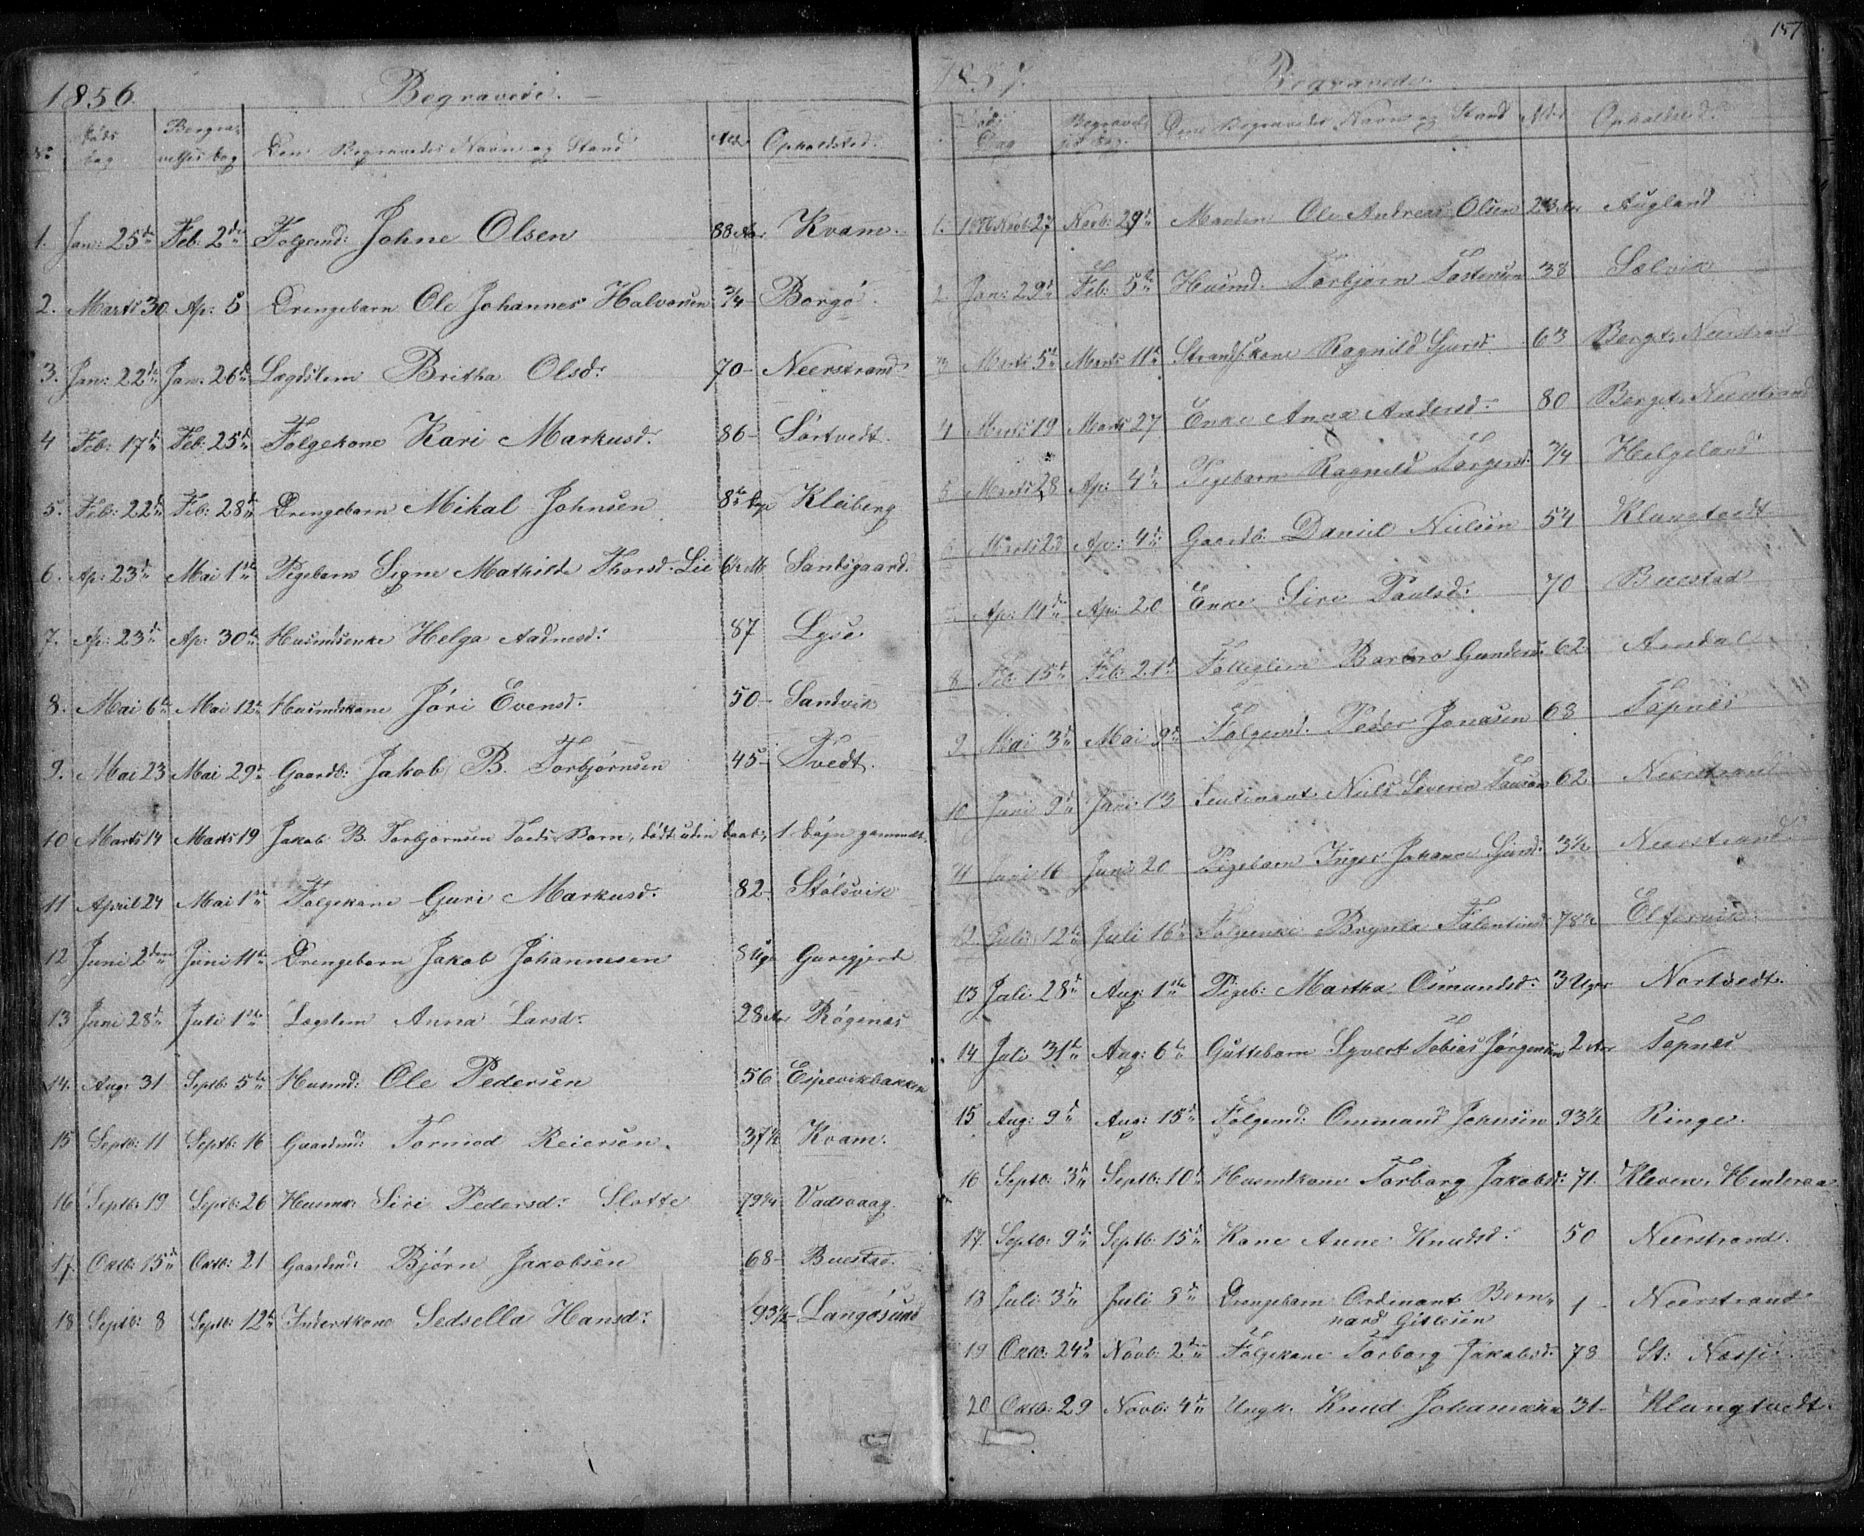 1856 Begravede.
No Døds dag Begravelses dag Den Begravedes Navn og Stand Alder Opholdsted.
1. Jan: 25de Feb. 2den Folgemd: Johne Olsen 88 Aar Kvam.
2. Marts 30 Ap: 5 Drengebarn Ole Johannes Halvorsen 3/4 Borgø.
3. Jan: 22de Jan: 26de Lægdslem Britha Olsdr 70 Neerstrand
4 Feb: 17de Feb: 25de Folgekone Kari Markusdr. 86 Sørtvedt.
5. Feb: 22de Feb: 28de Drengebarn Mikal Johnsen 8te Dge Kleiberg
6. Ap: 23de Mai 1ste Pigebarn Signe Mathilde Thorsd. Lie Sandsgaard.
7. Ap: 23de Ap: 30te Husmdsenke Helga Aadnesdr 87 Lyse
8. Mai 6te Mai 12te Husmdskone Jøri Evensdr. 50 Sandvik
9. Mai 23 Mai 29de Gaardb: Jakob B. Torbjørnsen 45 Tvedt.
10 Marts 14 Marts 19 Jakob B. Torbjørnsen Tveds Barn, dødt uden Daab, 1 Døgn gammelt.
11 April 24 Mai 1ste Folgekone Guri Markusdr. 82 Stølsvik
12 Juni 2den Juni 11te Drengebarn Jakob Johannesen 8 Ugr Garegjerd
13 Juni 28de Juli 1ste Lægslem Anna Larsdr. 28 Aar Røgenæs
14. Aug: 31 Septb: 5te Husmd: Ole Pedersen 56 Espevikbakken
15 Septb: 11 Septb: 16 Gaardmd: Tormod Reiersen. 37 1/2 Kvam.
16 Septb: 19 Septb: 26 Husmk: Siri Pedersdr Slotte 79 1/4 Vadsvaag
17. Oktb: 15de Oktb: 21 Gaardmd: Bjørn Jakobsen 68 Buestad.
18 Septb: 8 Septb: 12te Inderstkone Sedsella Hansdr. 93 1/2 Langøsund
157
1857. Begravede.
Døds Dag Begravelses Dag. Den Begravedes Navn og Stand Aldr Opholdsted.
1. 1856 Novb 27 Novb: 29de Manden Ole Andreas Olsen 23 Aar Augland
2 Jan: 29de Feb: 5te Husmd. Torbjørn Tostensen 38 Sælvik
3 Marts 5te Marts 11te Strandskone Ragnild Sjursd. 63 Berget, Neerstrand
4 Marts 19 Marts 27 Enke Anna Andersd. 80 Berget, Neerstrand
5 Marts 28 Ap: 4de Pigebarn Ragnild Torgersd. 3/4 Helgeland
6 Marts 23 Ap: 4de Gaardb: Daniel Nielsen 54 Klungtvedt
7 Ap: 14de Ap: 20 Enke Siri Paulsdr 70 Buestad
8 Feb: 15de Feb: 21de Fattiglem Barbro Gundersd 62 Amdal
9 Mai 3de Mai 9de Folgemd. Peder Jonasen 68 Topnes
10 Juni 9de Juni 13 Leutinant Niels Severin 62 Neerstrand
11 Juni 16 Juni 20 Pigebarn Inger Johanne Sjursd. 3 1/2 Neerstrand
12. Juli 12te Juli 16de Folgeenke Brynila Falentinsd. 78 1/2
13 Juli 28de Aug: 1ste Pigeb: Martha Osmundsdr 3 Uger Nortvedt.
14 Juli 31te Aug: 6te Guttebarn Syvert Tobias Jørgensen 2 Aar Topnes
15 Aug: 9de Aug: 15de Folgemd: Ommund Johnsen 93 1/2 Ringe.
16 Septb: 3de Septb: 10de Husmdkone Torborg Jakobsd: 71. Kleven, Hinderaa
17 Septb: 9de Septb: 15de Kone Anne Knudsd. 50 Neerstrand.
18 Juli 3de Juli 8de Drengebarn Ordinant Bern-
nard Gitlesen 1 Neerstrand
19 Oktb: 24de Novb: 2den Folgekone Torborg Jakobsdr. 78 St: Næsse.
20 Oktb: 29 Novb: 4de Ungk. Knud Johannesen 31 Klungtvedt.